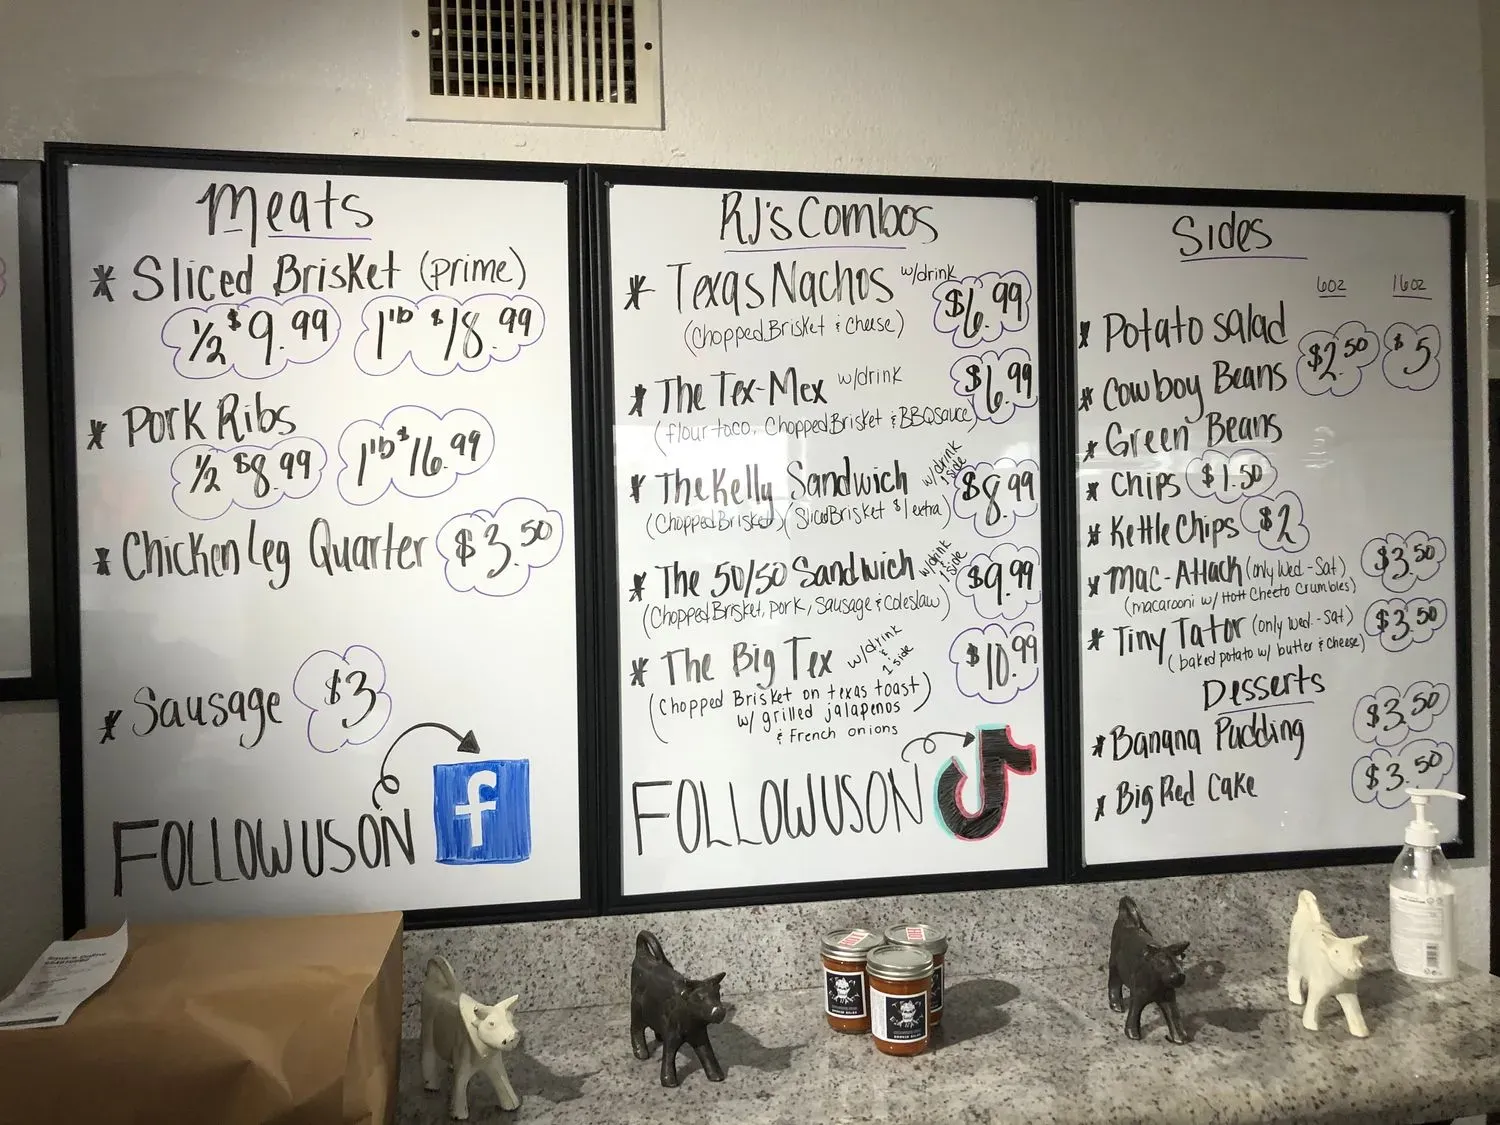 Meats
* Sliced Brisket (prime)
1/2 $9.99 1 lb $18.99
* Pork Ribs
1/2 $8.99 1 lb $16.99
* Chicken Leg Quarter $3.50
* Sausage $3
FOLLOW US ON f
RJ's Combos
* Texas Nachos w/drink $6.99
(Chopped Brisket & Cheese)
* The Tex-Mex w/drink $6.99
(flour taco, Chopped Brisket & BBQ sauce)
* The Kelly Sandwich w/drink 1 side $8.99
(Chopped Brisket) (Sliced Brisket $1 extra)
* The 50/50 Sandwich w/drink 1 side $9.99
(Chopped Brisket, pork, Sausage & Coleslaw)
* The Big Tex w/drink & 1 side $10.99
(Chopped Brisket on texas toast
w/ grilled jalapenos
& French onions)
FOLLOW US ON
Sides
6oz 16oz
* Potato Salad
* Cowboy Beans $2.50 $5
* Green Beans
* Chips $1.50
* Kettle Chips $2
* Mac-Attack (only Wed.-Sat) $3.50
(macarooni w/ Hott Cheeto Crumbles)
* Tiny Tator (only wed.-Sat) $3.50
(baked potato w/ butter & cheese)
Desserts
* Banana Pudding $3.50
* Big Red Cake $3.50
HOT